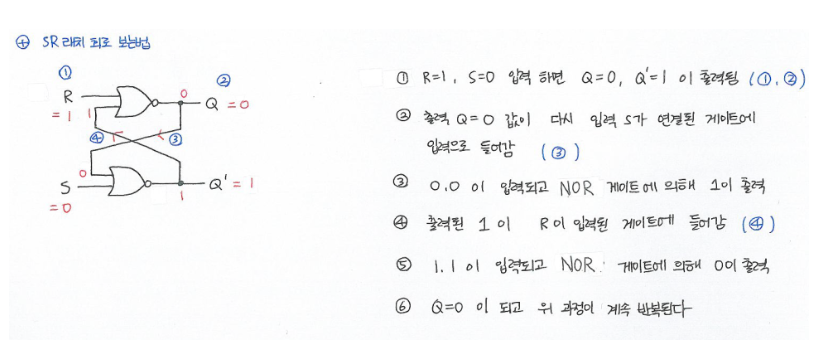 ⊕ SR래치 회로 보는법
①
②
R
= 1
1
0
Q = 0
④
③
0
S
= 0
1
Q' = 1
① R=1, S=0 입력 하면 Q=0, Q'=1 이 출력됨 (①, ②)
② 출력 Q=0 값이 다시 입력 S가 연결된 게이트에
입력으로 들어감 (③)
③ 0.0 이 입력되고 NOR 게이트에 의해 1이 출력
④ 출력된 1 이 R이 입력된 게이트에 들어감 (④)
⑤ 1.1 이 입력되고 NOR. 게이트에 의해 0이 출력
⑥ Q=0 이 되고 위 과정이 계속 반복된다